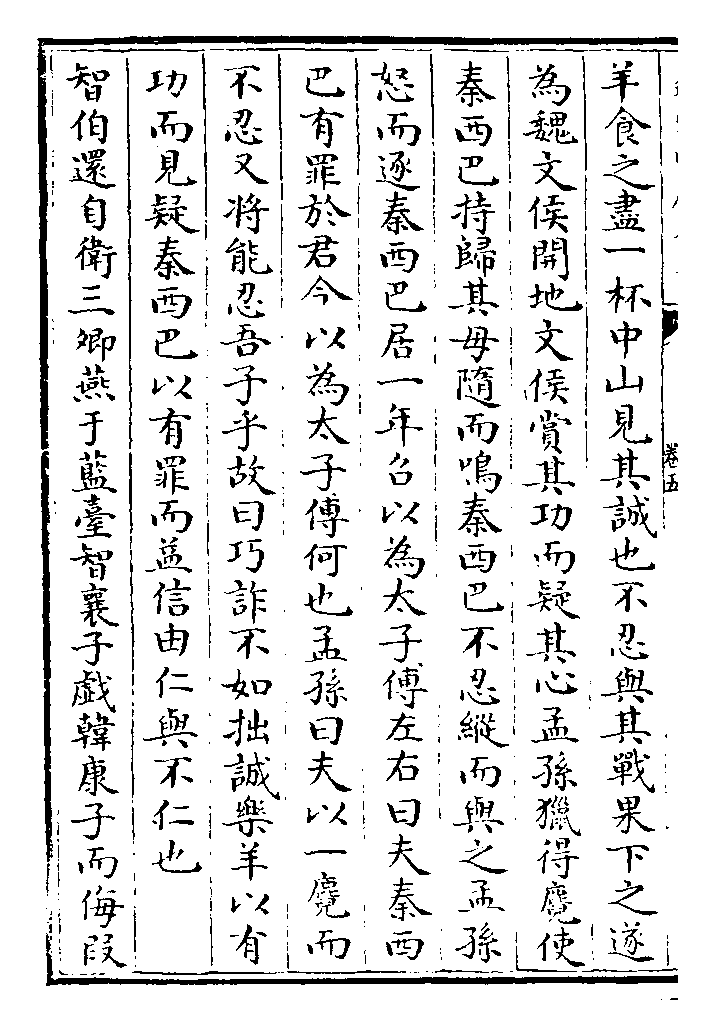 卷五
羊食之盡一杯中山見其誠也不忍與其戰果下之遂
為魏文侯開地文侯賞其功而疑其心孟孫獵得麑使
秦西巴持歸其母隨而鳴秦西巴不忍縱而與之孟孫
怒而逐秦西巴居一年召以為太子傅左右曰夫秦西
巴有罪於君今以為太子傅何也孟孫曰夫以一麑而
不忍又将能忍吾子乎故曰巧詐不如拙誠樂羊以有
功而見疑秦西巴以有罪而益信由仁與不仁也
智伯還自衛三卿燕于藍臺智襄子戲韓康子而侮叚